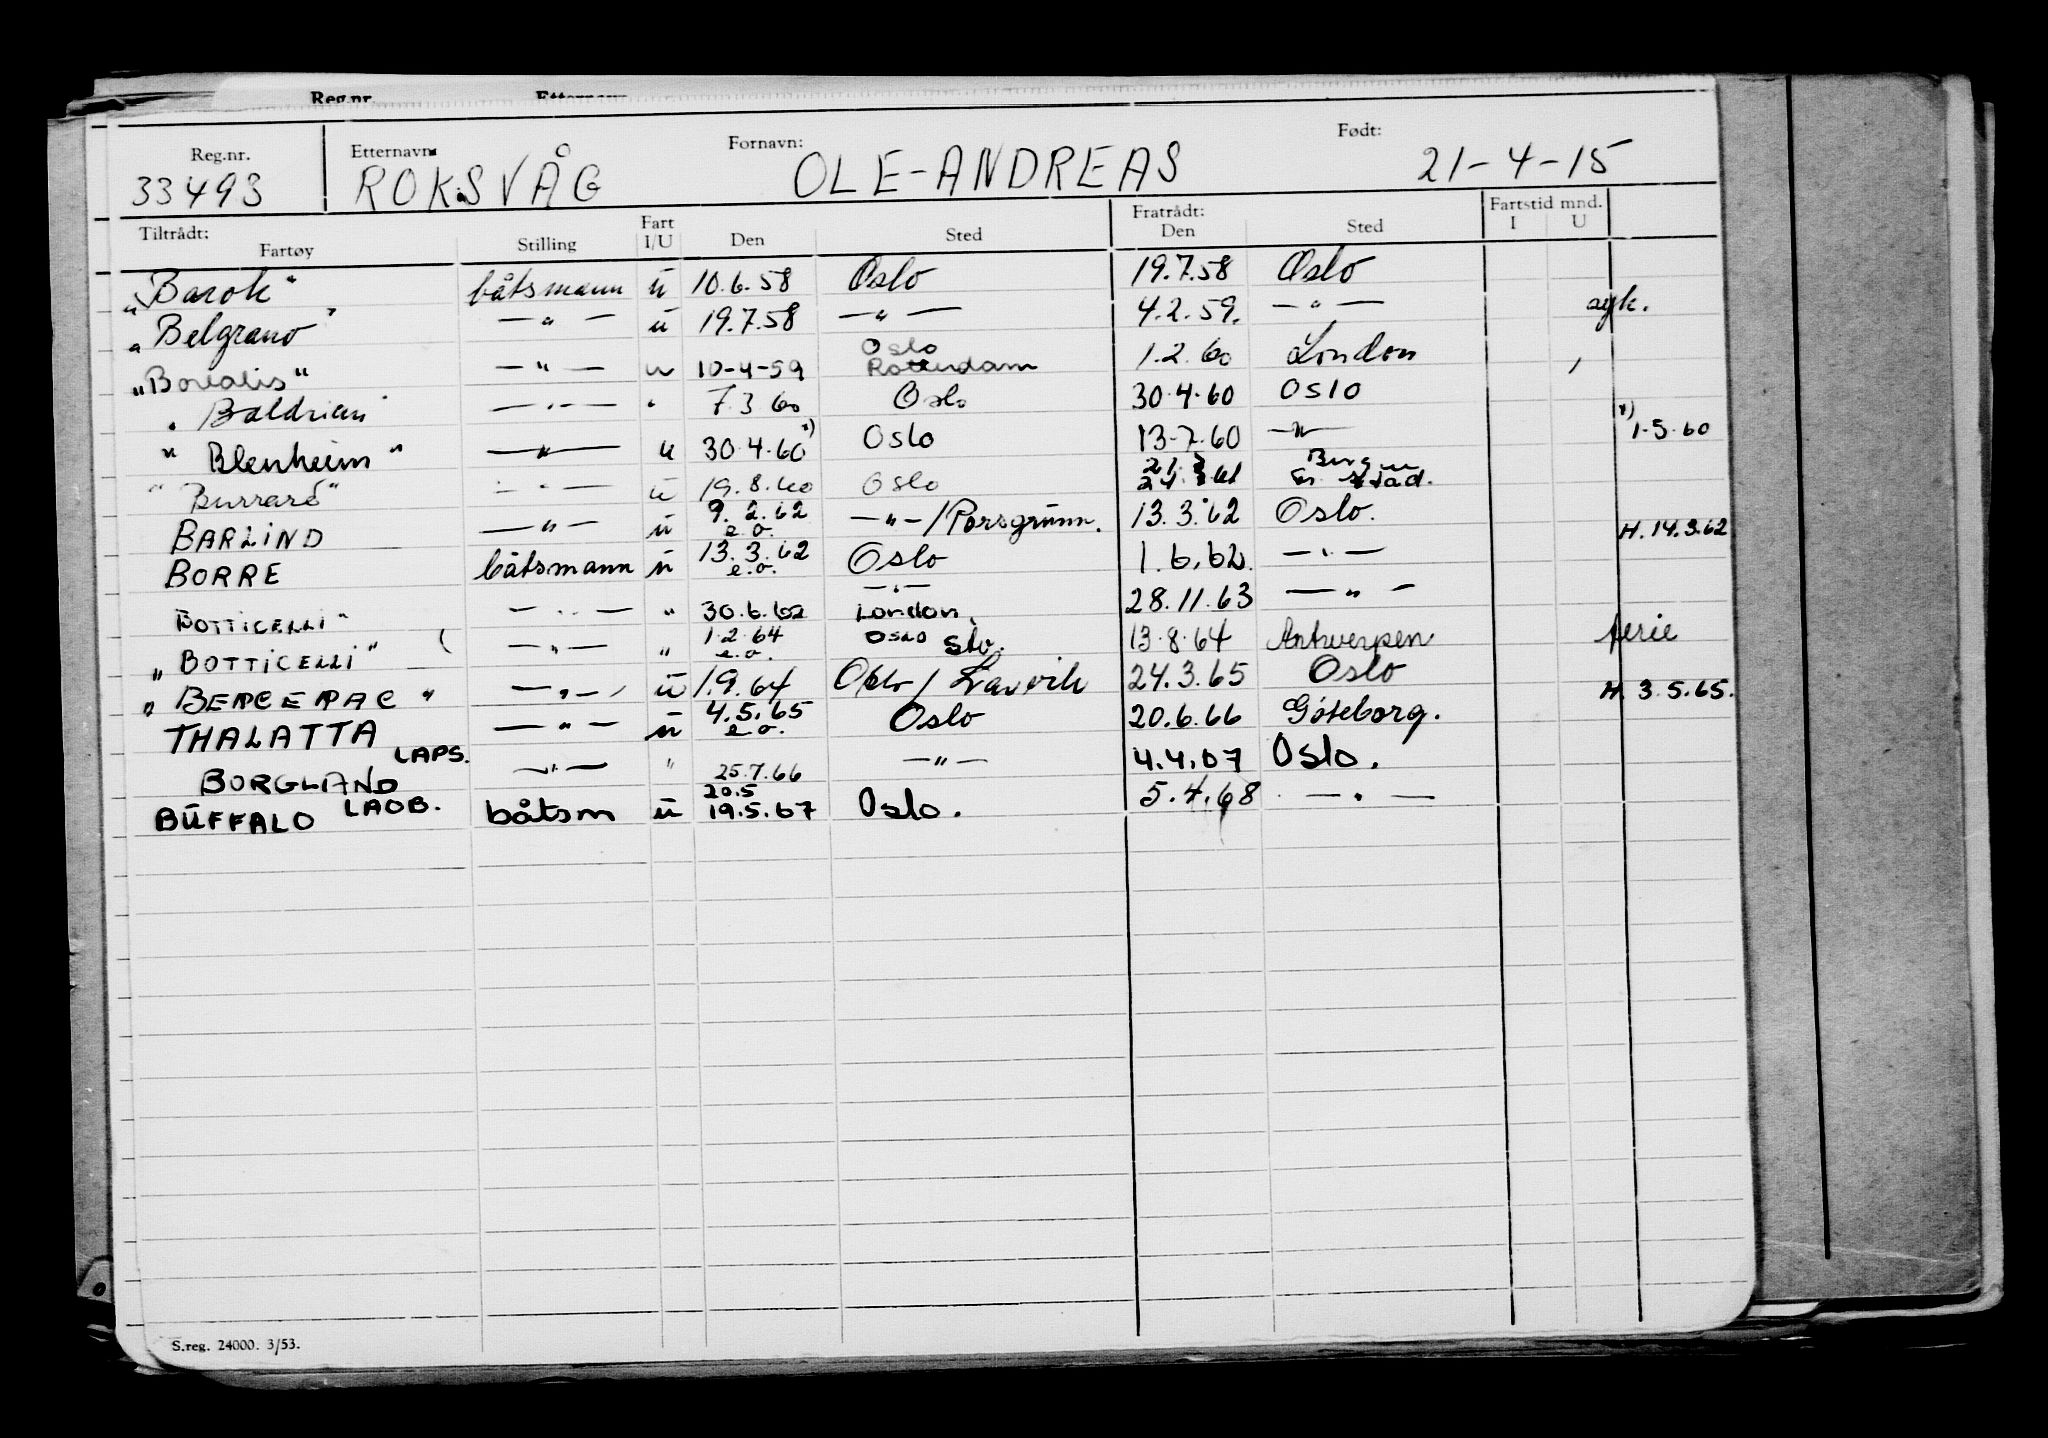 Reg.nr. Etternavn: Fornavn: Født:
33493 ROKSVÅG OLE-ANDREAS 21-4-15
Tiltrådt: Fartøy Stilling Fart I/U Den Sted Fratrådt: Den Sted Fartstid mnd. I U
"Barok" båtsmann ü 10.6.58 Oslo 19.7.58 Oslo
"Belgrano" —"— ü 19.7.58 —"— 4.2.59. —"— syk.
"Borealis" —"— u 10-4-59 Oslo Rotterdam 1.2.60 London
" Baldrian" —"— " 7.3 60 Oslo 30.4.60 OSlO
" Blenheim " —"— u 30.4.60 x) Oslo 13-7.60 —"— x) 1-5.60
" Burrard" —"— ü 19.8.60 Oslo
BARLIND —"— ü 9.2.62 e.o. —"—/Porsgrunn. 13.3.62 Oslo. H. 14.3.62
BORRE båtsmann ü 13.3.62 e.o. Oslo 1.6.62. —"—
BOTTICELLI" —"— " 30.6.62 —"— London. 28.11.63 —"—
"BOTTICELLI" —"— " 1.2.64 e.o. Oslo 13.8.64 Antwerpen ferie
" BERGERAC " —"— ü 1.9.64 Oslo/Larvik 24.3.65 Oslo H. 3.5.65.
THALATTA —"— ü 4.5.65 e.o. Oslo 20.6.66 Göteborg.
BORGLAND LAPS. —"— " 25.7.66 —"— 4.4.67 Oslo.
BÜFFALO LAOB. båtsm ü 20.5 19.5.67 Oslo. 5.4.68 —"—
S.reg. 24000. 3/53.